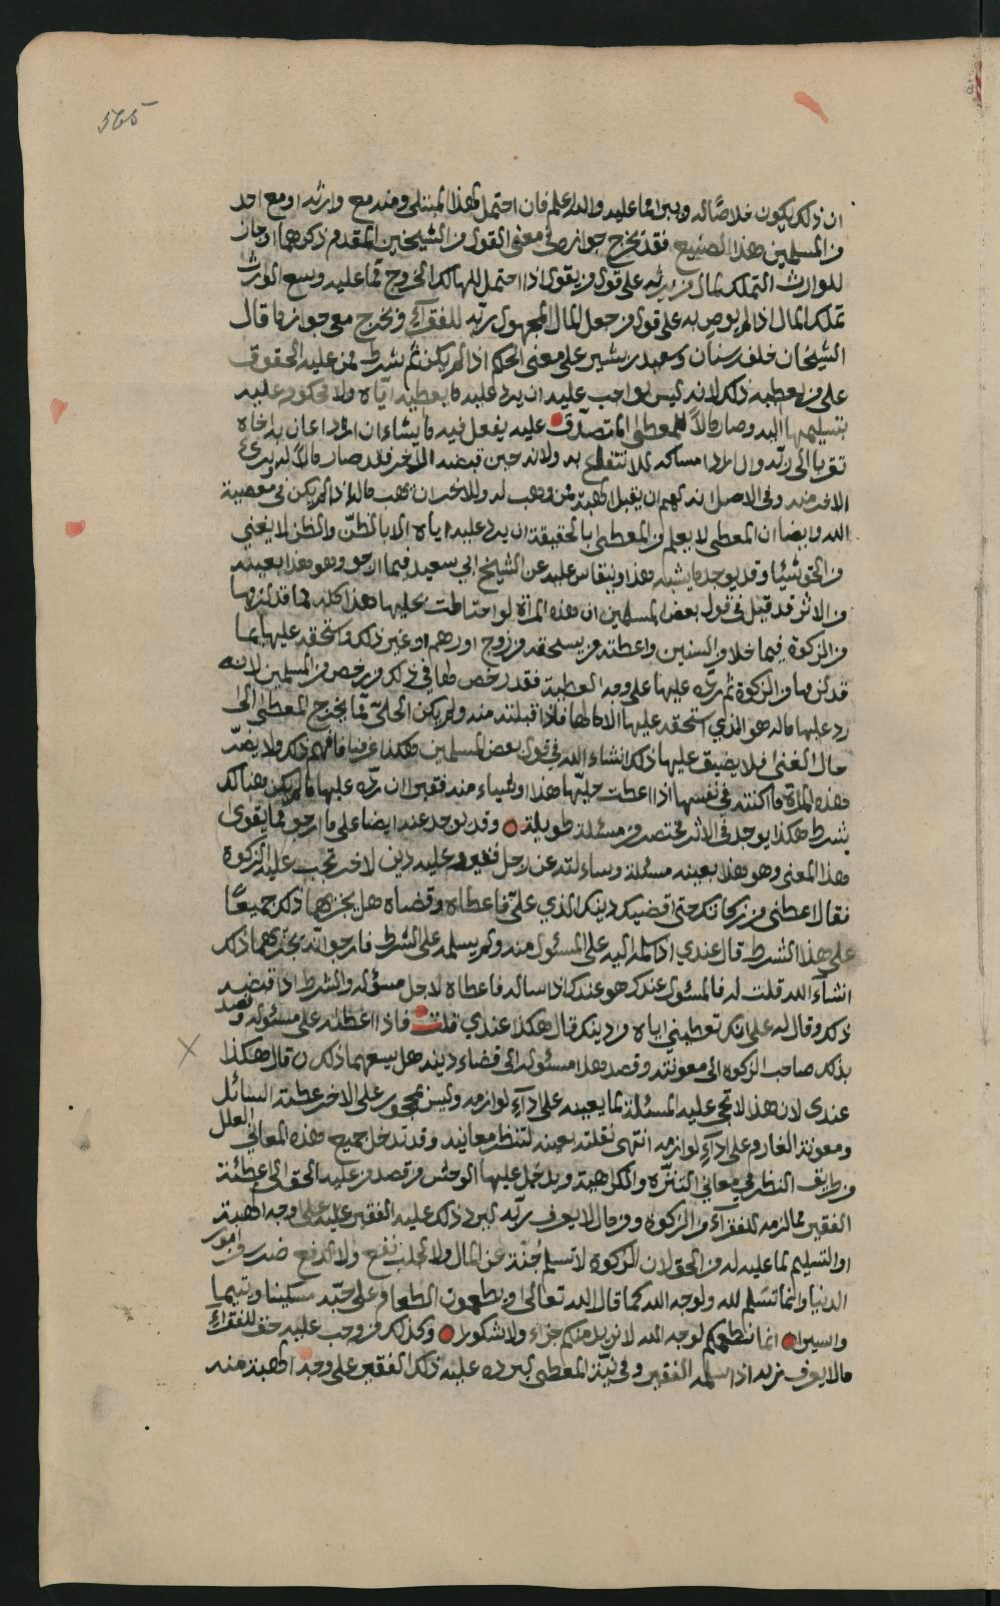 ان ذلك يكون خلاصًا له وبيراما عليه والله اعلم فان احتمل لهذا المبتلى ومنه مع وارثه او مع احد
من المسلمين هذا الصنيع فقد يخرج جوازه في معنى القول من الشيخين المقدم ذكرهما ان جاز
للوارث التملك لمال من يرثه على قول من يقول اذا احتمل للهالك الخروج مما عليه وسع الوارث
تملك المال اذا لم يوص به على قول من جعل المال المجهول ربه للفقرآء ويخرج معي جواز ما قال
الشيخان خلف بن سنان وسعيد بن بشير على معنى الحكم اذا لم يكن ثم شرط ممن عليه الحقوق
على من يعطيه ذلك لانه ليس بواجب عليه ان يرد عليه ما يعطيه اياه ولا محكور عليه
بتسليمها اليه وصار مالاً للمعطى المتصدّق عليه يفعل فيه ما يشاء ان اراد اعان به اخاه
تقربا الى ربه وان اراد امساكه للانتفاع به ولانه حين قبضه الآخر فقد صار مالا له برئ
الاخر منه وفي الاصل انه لهم ان يقبل الهبة ممن وهب له وللاخر ان يهب ماله اذا لم يكن في معصية
الله وايضا ان المعطي لا يعلم من المعطى بالحقيقة ان يرد عليه اياه الا بالظنّ والظن لا يغني
من الحق شيئا وقد يوجد ما يشبه هذا وينقاس عليه عن الشيخ ابي سعيد فيما ارجو وهو هذا بعينه
من الاثر قد قيل في قول بعض المسلمين ان هذه المرأة لو احتاطت بحليها هذا كله مما قد لزمها
من الزكوة فيما خلا من السنين واعطته من يستحقه من زوج او رحم او غير ذلك واستحقه عليها بما
قد لزمها من الزكوة ثم ردّه عليها على وجه العطية فقد رخص لها في ذلك من رخص من المسلمين لانه
رد عليها ماله هو الذي استحقه عليها الا مالها فاذا قبلته منه ولم يكن الحليّ مما يخرج المعطى الى
حال الغنى فلا يضيق عليها ذلك انشاء الله في قول بعض المسلمين هكذا عرفنا فافهم ذلك ولا يضرّ
هذه المرأة ما اكنته في نفسها اذا اعطت حليّها هذا او شياء منه فقير ان ردّه عليها ما لم يكن هنالك
شرط هكذا يوجد في الاثر مختصر من مسئلة طويلة وقد يوجد عنه ايضا على ما ارجو مما يقوى
هذا المعنى وهو هذا بعينه مسئلة وساءلته عن رجل فقير وعليه دين لاخر تجب عليه الزكوة
فقال اعطني من زكاتك حتى اقضيك دينك الذي عليّ فاعطاه وقضاه هل يجزيهما ذلك جميعًا
على هذا الشرط قال عندي اذا سلمه اليه على المسئول منه ولم يسلمه على الشرط فارجو انّه يجزيهما ذلك
انشآء الله قلت له فالمسئول عندك هو عندك اذا ساله فاعطاه لاجل مسؤله والشرط اذا قبضه
ذلك وقال له على انك تعطيني اياه من دينك قال هكذا عندي قلت فاذا اعطاه على مسئوله وقصد
بذلك صاحب الزكوة الى معونته وقصد هذا مسئوله الى قضاء دينه هل يسعهما ذلك ن قال هكذا
عندي لان هذا لا تحجر عليه المسئلة لما يعينه على ادآء لوازمه وليس محجور على الاخر عطية السائل
ومعونة الغارم على ادآء لوازمه انتهى نقلته بعينه لتنظر معانيه وقد تدخل جميع هذه المعاني العلل
من طريف النظر في معاني التنزه والكراهية ويدخل عليها الوحش من قصد من عليه الحق الى اعطائه
الفقير مما لزمه للفقرآء من الزكوة ومن مال لا يعرف ربّه ليرد ذلك عليه الفقير عليه على وجه الهبة
او التسليم لما عليه له من الحق لان الزكوة لا تسلم جُنّة عن المال ولا لجلب نفع ولا لدفع ضرر وامور
الدنيا وانما تسلم لله ولوجه الله كما قال الله تعالى ويطعمون الطعام على حبّه مسكينا ويتيما
واسيرا انما نطعمكم لوجه الله لا نريد منكم جزاء ولا شكورا وكذلك من وجب عليه حق للفقرآء
مما لا يعرف ربه اذا سلمه الفقير وفي نيّة المعطي ليرده عليه ذلك الفقير على وجه الهبة منه